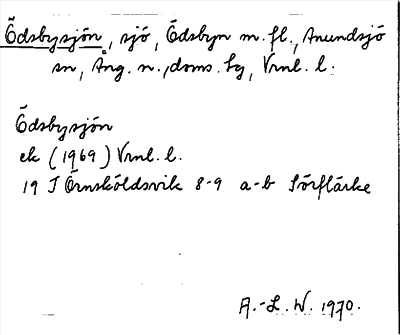 Ödsbysjön, sjö, Ödsbyn m.fl., Anundsjö
sn, Ång. n., doms. sg, Vrnl. l.
Ödsbysjön
ek (1969) Vrnl. l.
19 J Örnsköldsvik 8-9 a-b Sörflärke
A.-L. W. 1970.